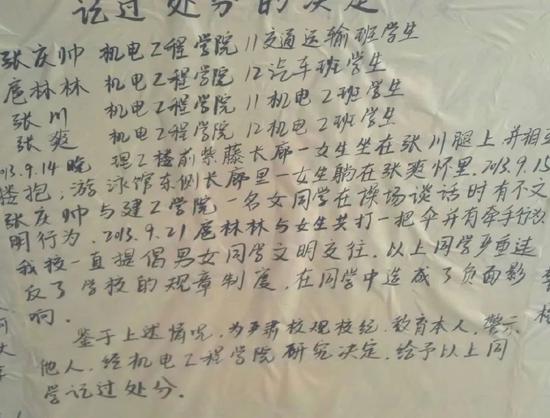 记过处分的决定
张庆帅 机电工程学院 11交通运输班学生
扈林林 机电工程学院 12汽车班学生
张川 机电工程学院 11机电2班学生
张爽 机电工程学院 12机电2班学生
2013.9.14晚 理工楼前紫藤长廊一女生坐在张川腿上,并相互
搂抱;游泳馆东侧长廊里一女生躺在张爽怀里.2013.9.15
张庆帅与建工学院一名女同学在操场谈话时有不文
明行为.2013.9.21扈林林与女生共打一把伞并有牵手行为
我校一直提倡男女同学文明交往.以上同学严重违
反了学校的规章制度,在同学中造成了负面影
响.
鉴于上述情况,为严肃校规校纪.教育本人,警示
他人.经机电工程学院研究决定.给予以上同
学记过处分.